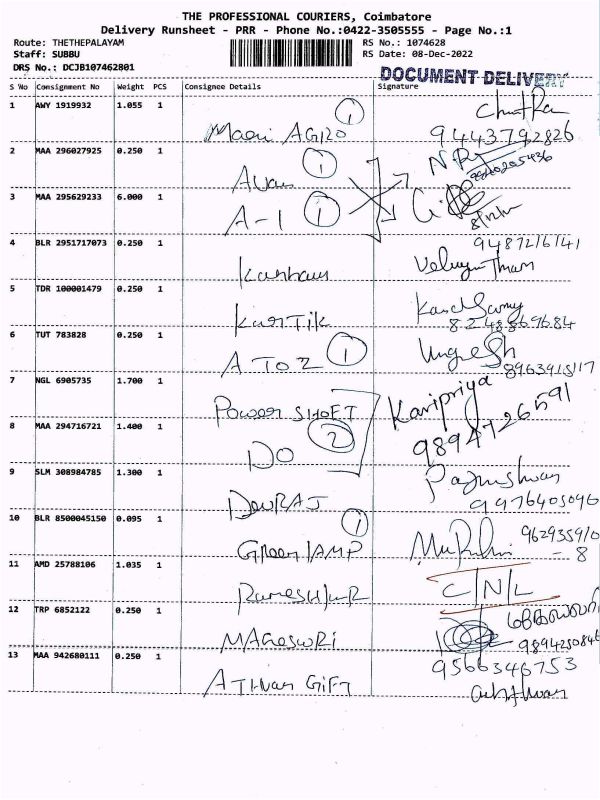 THE PROFESSIONAL COURIERS, Coimbatore
Delivery Runsheet - PRR - Phone No.:0422-3505555 - Page No.:1
Route: THETHEPALAYAM
RS No.: 1074628
Staff: SUBBU
RS Date: 08-Dec-2022
DRS No.: DCJB107462801
DOCUMENT DELIVERY
S No Consignment No Weight PCS Consignee Details Signature
1 AWY 1919932 1.055 1 1
9443792826
2 MAA 296027925 0.250 1 1
3 MAA 295629233 6.000 1 A-1 1
9487216141
4 BLR 2951717073 0.250 1
5 TDR 100001479 0.250 1 KarTik
6 TUT 783828 0.250 1 A TO Z 1
7 NGL 6905735 1.700 1 Power SHOFT Karipriya
9894726591
8 MAA 294716721 1.400 1 DO 2
9 SLM 308984785 1.300 1 DevRAJ
9976405096
10 BLR 8500045150 0.095 1 Green LAMP 1
962935910
- 8
11 AMD 25788106 1.035 1 C/N/L
12 TRP 6852122 0.250 1 MAGeswRi
9894250846
9566346753
13 MAA 942680111 0.250 1 AThvan GiFT